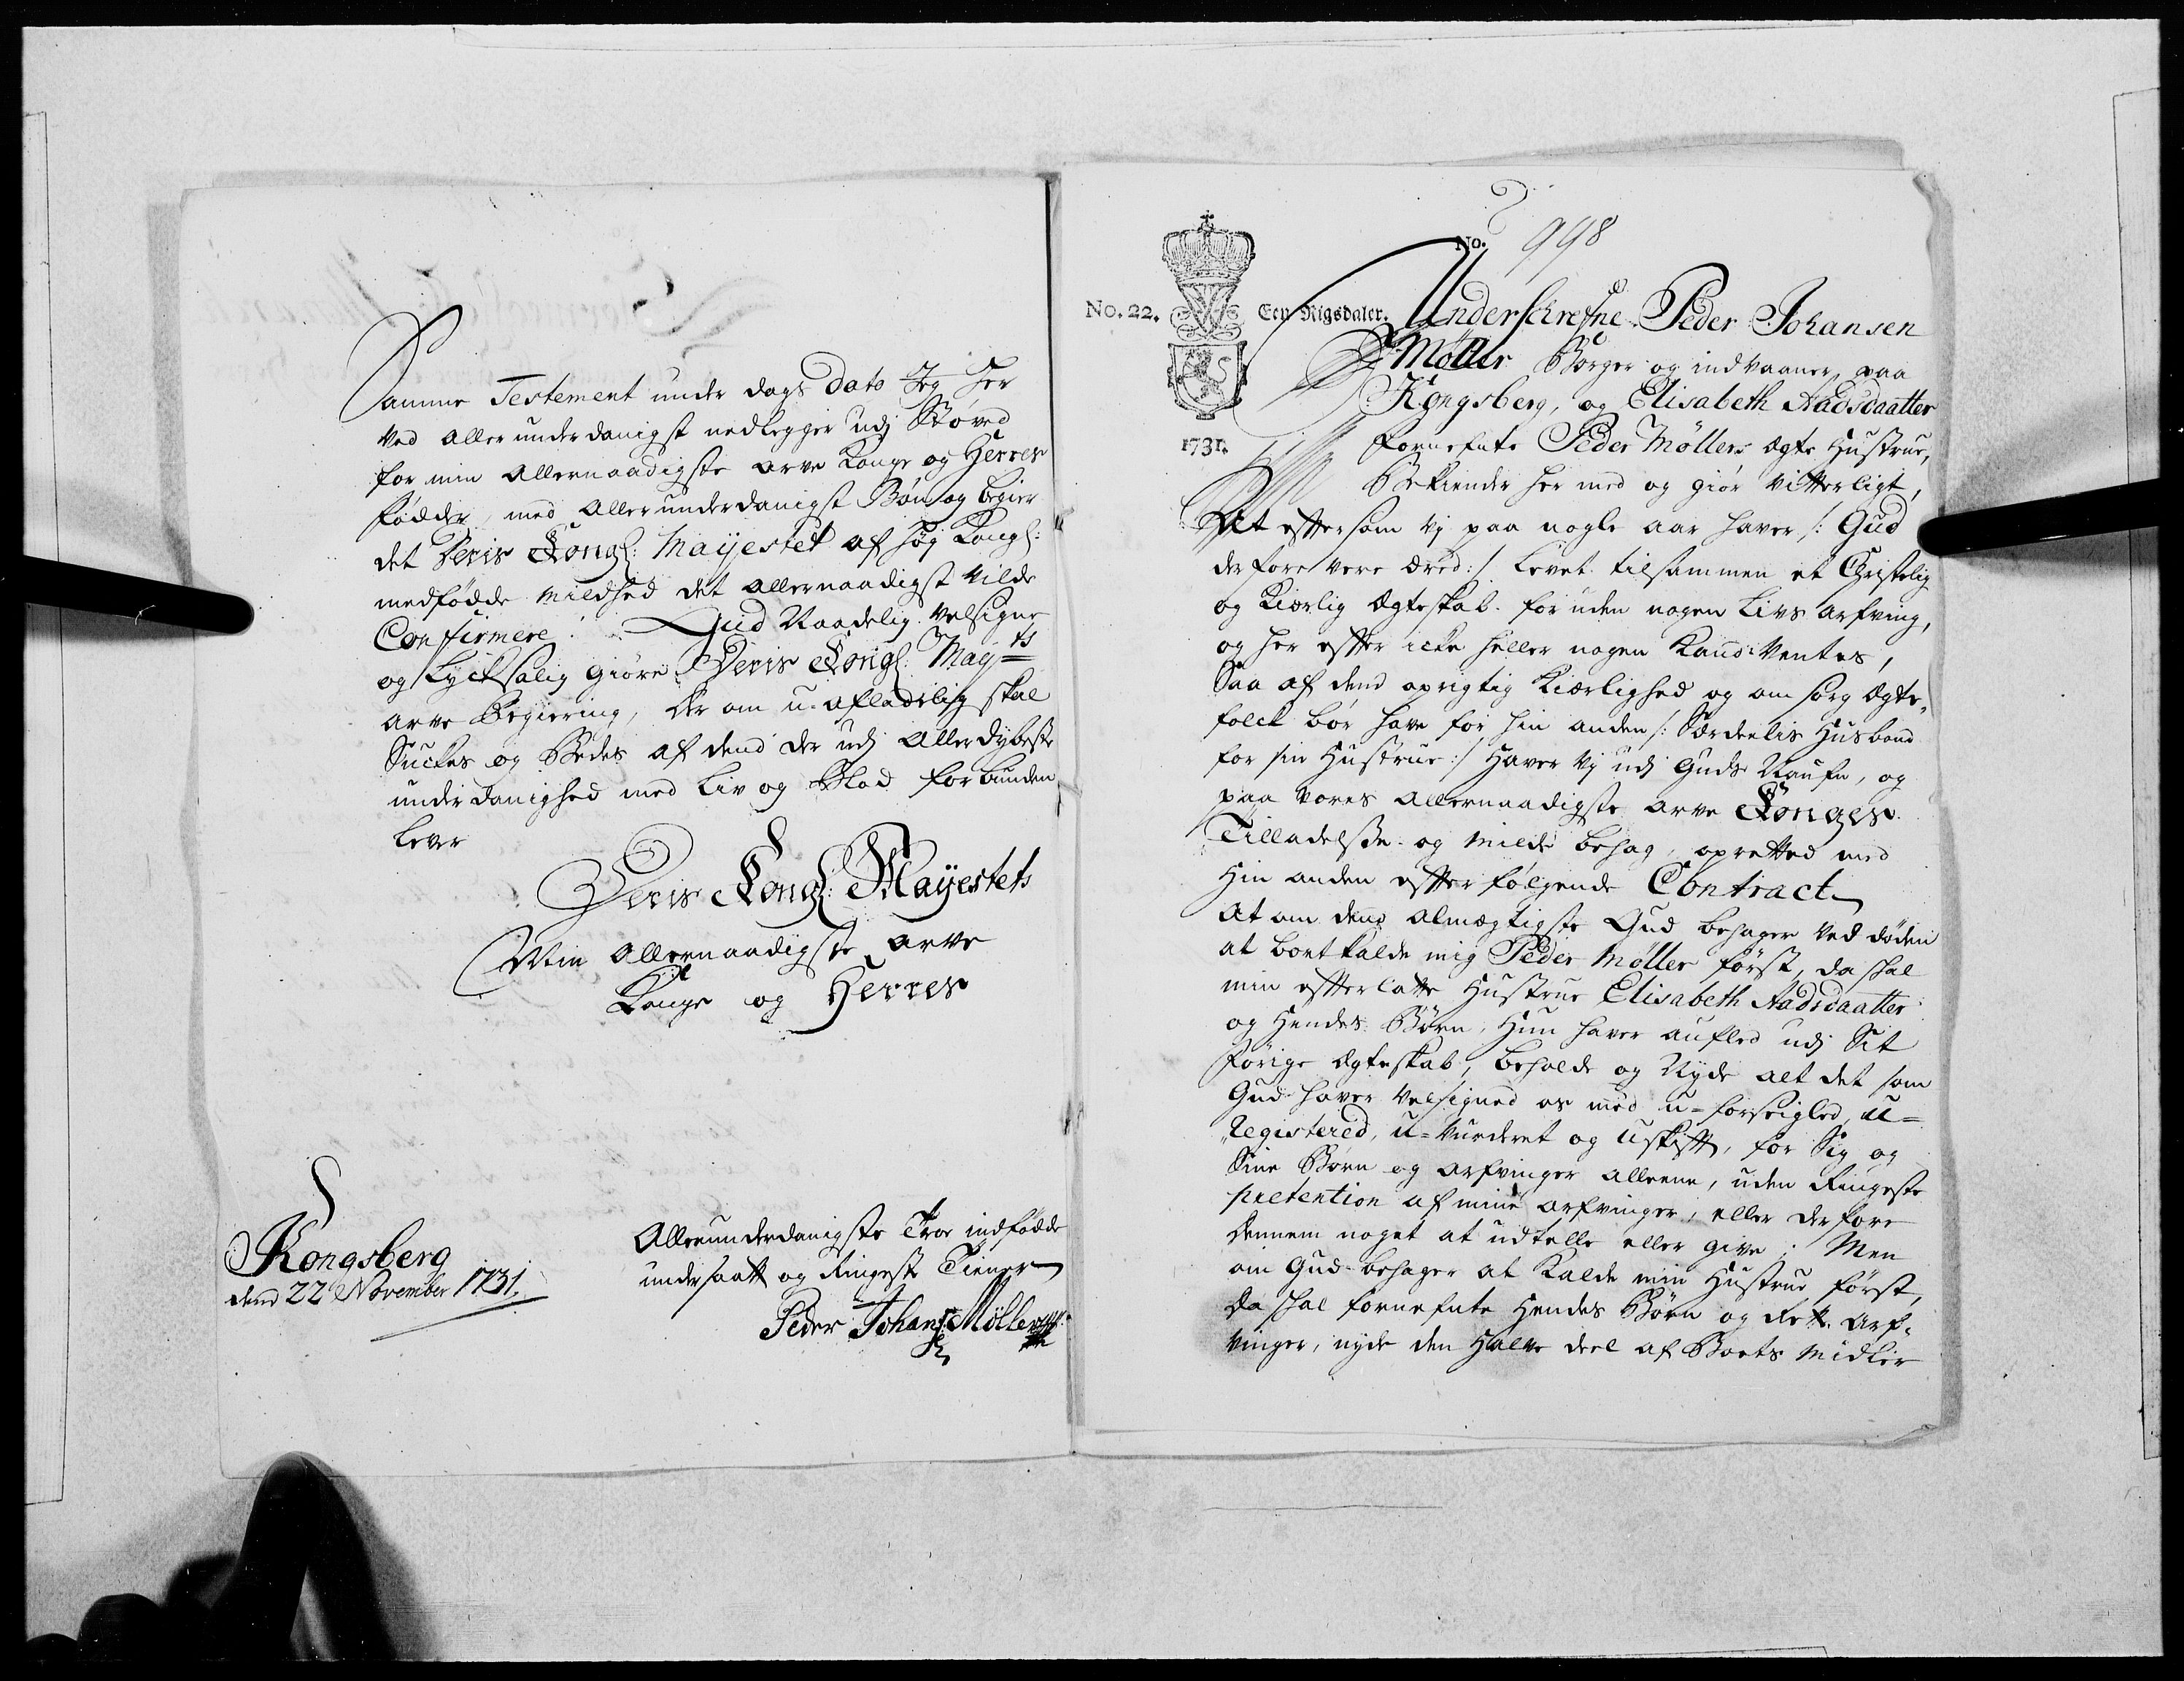 Samme Testement under dags dato Jeg her
ved allerunderdanigst nedlegger udj Støved
for min allernaadigste arve Konge og Herres
fødder, med allerunderdanigst Bøn og begier
det Deris Kongl: Mayestet af høy Kongl:
medfødde mildhed det allernaadigst vilde
Confirmere! Gud Naadelig velsigne
og Lycksalig giøre Deris Kongl: Mayts
arve Regiering, der om u-afladelig skal
Suckes og Bedes af dend der udj allerdybeste
underdanighed med Liv og Blod forbunden
lever
Deris Kongl: Mayestets
Min allernaadigste arve
Konge og Herres
Kongsberg
dend 22 November 1731.
Allerunderdanigste Troe indfødde
undersaatt og Ringeste Tiener
Peder Johans: Møller
No. 998
No. 22. Een Rigsdaler.
1731.
Underschrefne Peder Johansen
Møller Borger og indvaaner paa
Kongsberg, og Elisabeth Aadsdaatter
fornefnte Peder Møllers Ægte Hustrue,
Bekiender her med og giør vitterligt,
At eftersom vj paa nogle aar haver /: Gud
derfore være æred :/ levet tilsammen et Christelig
og Kierlig Ægteskab foruden nogen Livs arfving,
og her efter icke heller nogen kand ventes,
Saa af dend oprigtig Kierlighed og omsorg Ægte-
folck bør have for hin anden /: Særdeelis Husbond
for sin Hustrue :/ Haver vj udj Guds Naufn, og
paa vores allernaadigste arve Konges
Tilladelsse og milde behag, opretted med
hin anden efterfølgende Contract
At om dend almægtigste Gud behager ved døden
at bortkalde mig Peder Møller først, da skal
min efterlatte Hustrue Elisabeth Aadsdaatter
og Hendes Børn, Hun haver aufled udj Sit
forige Ægteskab, beholde og Nyde alt det som
Gud haver velsigned os med u-forseigled, u-
Registered, u-vurderet og uskift, for Sig og
Sine Børn og arfvinger alleene, uden Ringeste
pretention af mine arfvinger, eller derfore
dennem noget at udtelle eller give; Men
om Gud behager at Kalde min Hustrue først,
da skal fornefnte Hendes Børn og Rett. arf-
vinger, nyde den halve deel af Boets midler